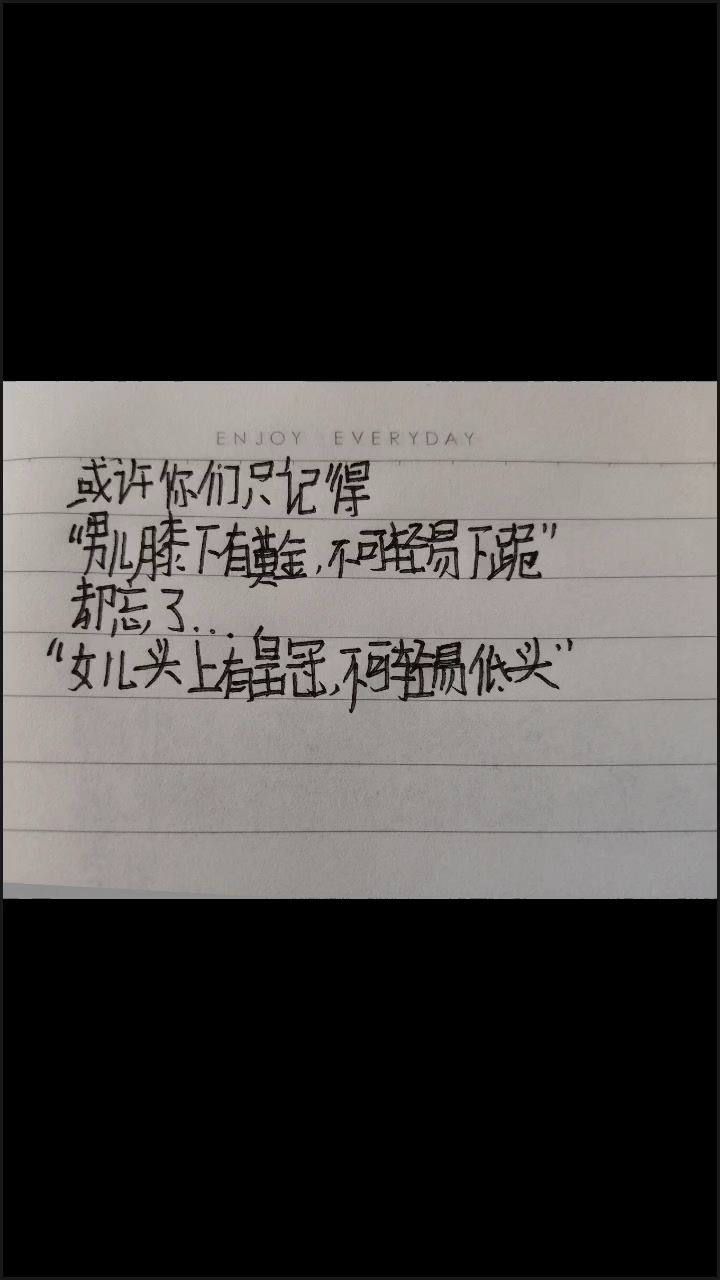 ENJOY EVERYDAY
或许你们只记得
“男儿膝下有黄金,不可轻易下跪”
却忘了...
“女儿头上有皇冠,不可轻易低头”